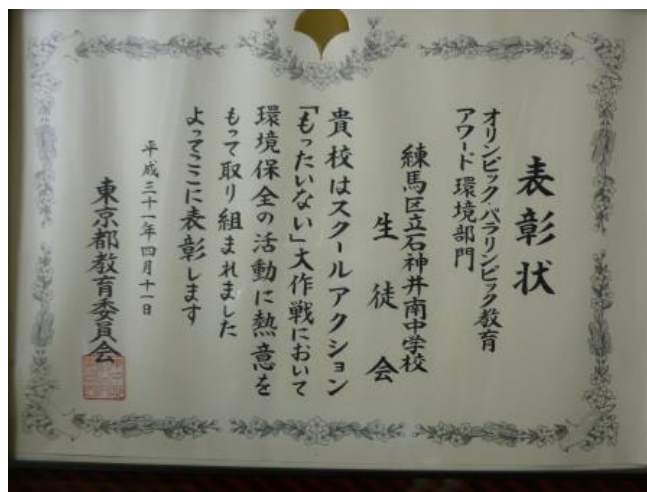 表彰状
オリンピック・パラリンピック教育
アワード環境部門
練馬区立石神井南中学校
生徒会
貴校はスクールアクション
「もったいない」大作戦において
環境保全の活動に熱意を
もって取り組まれました
よってここに表彰します
平成三十一年四月十一日
東京都教育委員会